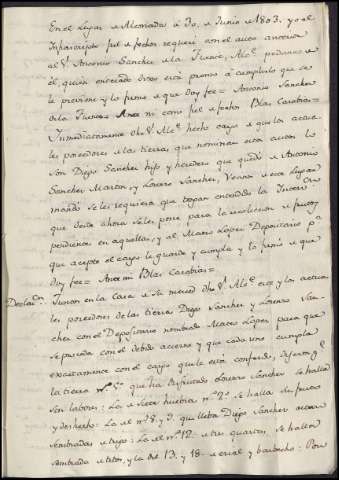 En el Lugar de Alconada à 30, de Junio de 1803, yo el
Infraescripto fiel de fechos requerí con el auto antecede
al Sr. Antonio Sanchez de la Fuente, Alce. pedaneo de
él, quien enterado dixo está pronto à cumplirlo que se
le previene y lo firmo de que doy fee = Antonio Sanchez
de la Fuente = Ante mi como fiel de fechos Blas Carabias =
Inmediatamente dho Sr. Alce. hecho cargo de que los actua-
les poseedores de las tierras, que nominan esta auto lo
son Diego Sanchez hijo y heredero que quedó de Antonio
Sanchez Martin, y Lorenzo Sanchez, Vecino de este Lugar
mandó se les requiera que tengan entendido la Interon.
que desde ahora se les pone para la recoleccion de frutos
pendientes en aquellas, y al Mateo Lopez Depositario pa.
que acepte el cargo le guarde y cumpla y lo firmo de que
doy fee = Ante mi Blas Carabias =
Declaon. Juntos en la Casa de su merced dho Sr. Alce. este y los actua-
les poseedores de las tierras Diego Sanchez, y Lorenzo San-
chez con el Depositario nombrado Mateo Lopez para que
se proceda con el debido acierto y que cada uno cumpla
exactamente con el cargo que le está conferido,
la tierra nº 5º que ha disfrutado Lorenzo Sanchez se halla
son labores: La de siete huebras nº 7º se halla sin fruto
y deshecho: La del nº 8, y 9. que lleba Diego Sanchez estan
sembradas de trigo: La del nº 12. de tres quartas, se hallan
sembrada de titos, y la del 13, y 18 de erial y barbecho: Por